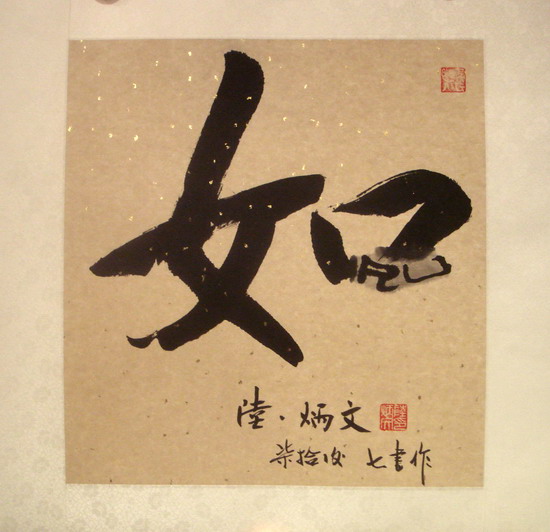 如
RU
陸·炳文
柒拾後 七書作